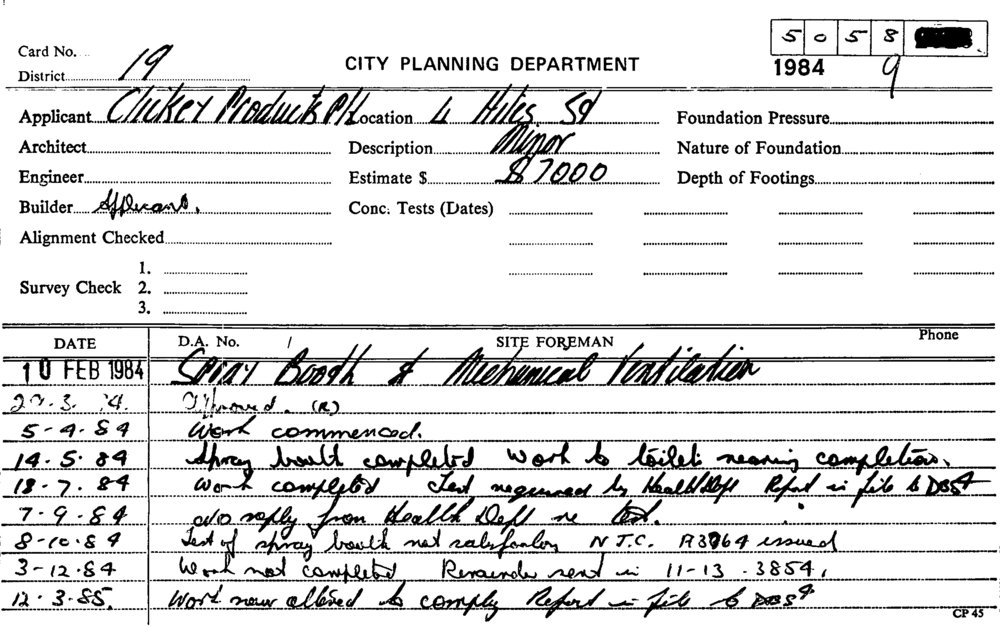 5 0 5 8
Card No. 19
District
CITY PLANNING DEPARTMENT
1984 9
Applicant Clukey Products P/L Location 4 Hiles St Foundation Pressure
Architect Description Minor Nature of Foundation
Engineer Estimate $ $7000 Depth of Footings
Builder Applicant. Conc. Tests (Dates)
Alignment Checked
1.
Survey Check 2.
3.
DATE D.A. No. / SITE FOREMAN Phone
10 FEB 1984 Spray Booth & Mechanical Ventilation
29.3. 84. Approved. (R)
5-4-84 Work commenced.
14.5.84 Spray booth completed Work to toilets nearing completion.
18-7.84 Work completed Test required by Health Dept Report in file to DBS
7-9-84 No reply from Health Dept re test.
8-10-84 Test of spray booth not satisfactory N.T.C. A3764 issued
3-12.84 Work not completed Reminder sent in 11-13.3854,
12.3.85. Work now altered to comply Report in file to DBS
CP 45